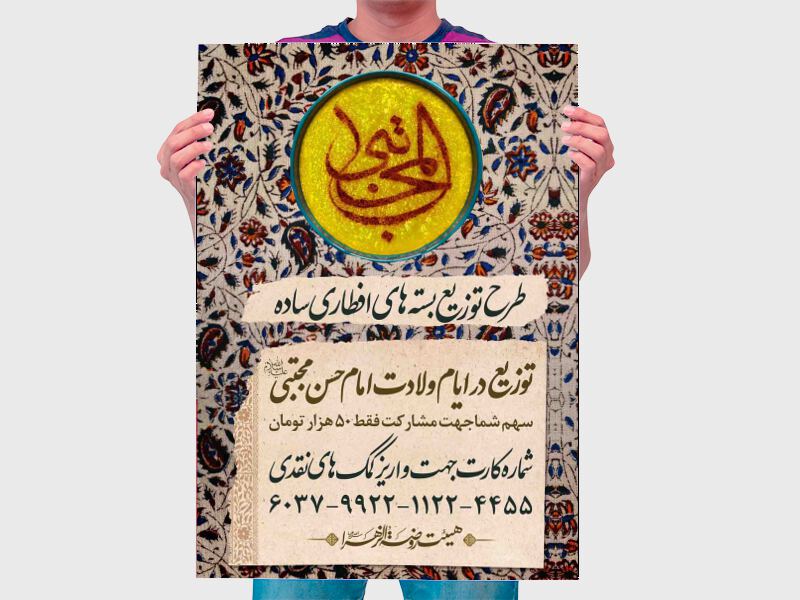 المجتبی
طرح توزیع بسته های افطاری ساده
توزیع در ایام ولادت امام حسن مجتبی علیه‌السلام
سهم شما جهت مشارکت فقط ۵۰ هزار تومان
شماره کارت جهت واریز کمک های نقدی
۶۰۳۷-۹۹۲۲-۱۱۲۲-۴۴۵۵
هیئت روضة الزهرا